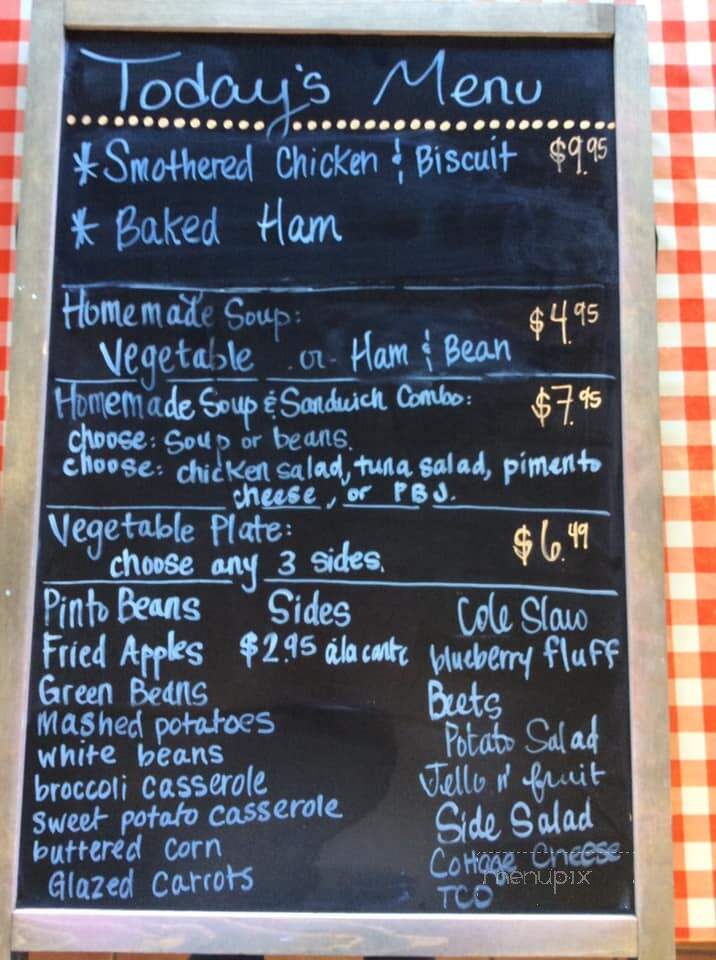 Today's Menu
* Smothered Chicken & Biscuit $9.95
* Baked Ham
Homemade Soup: $4.95
Vegetable or Ham & Bean
Homemade Soup & Sandwich Combo: $7.95
choose: Soup or beans.
choose: chicken salad, tuna salad, pimento
cheese, or PBJ.
Vegetable Plate: $6.49
choose any 3 sides.
Sides
$2.95 álacarte
Pinto Beans
Fried Apples
Green Beans
mashed potatoes
white beans
broccoli casserole
sweet potato casserole
buttered corn
Glazed Carrots
Cole Slaw
blueberry fluff
Beets
Potato Salad
Jello n' fruit
Side Salad
Cottage Cheese
TCO
menupix